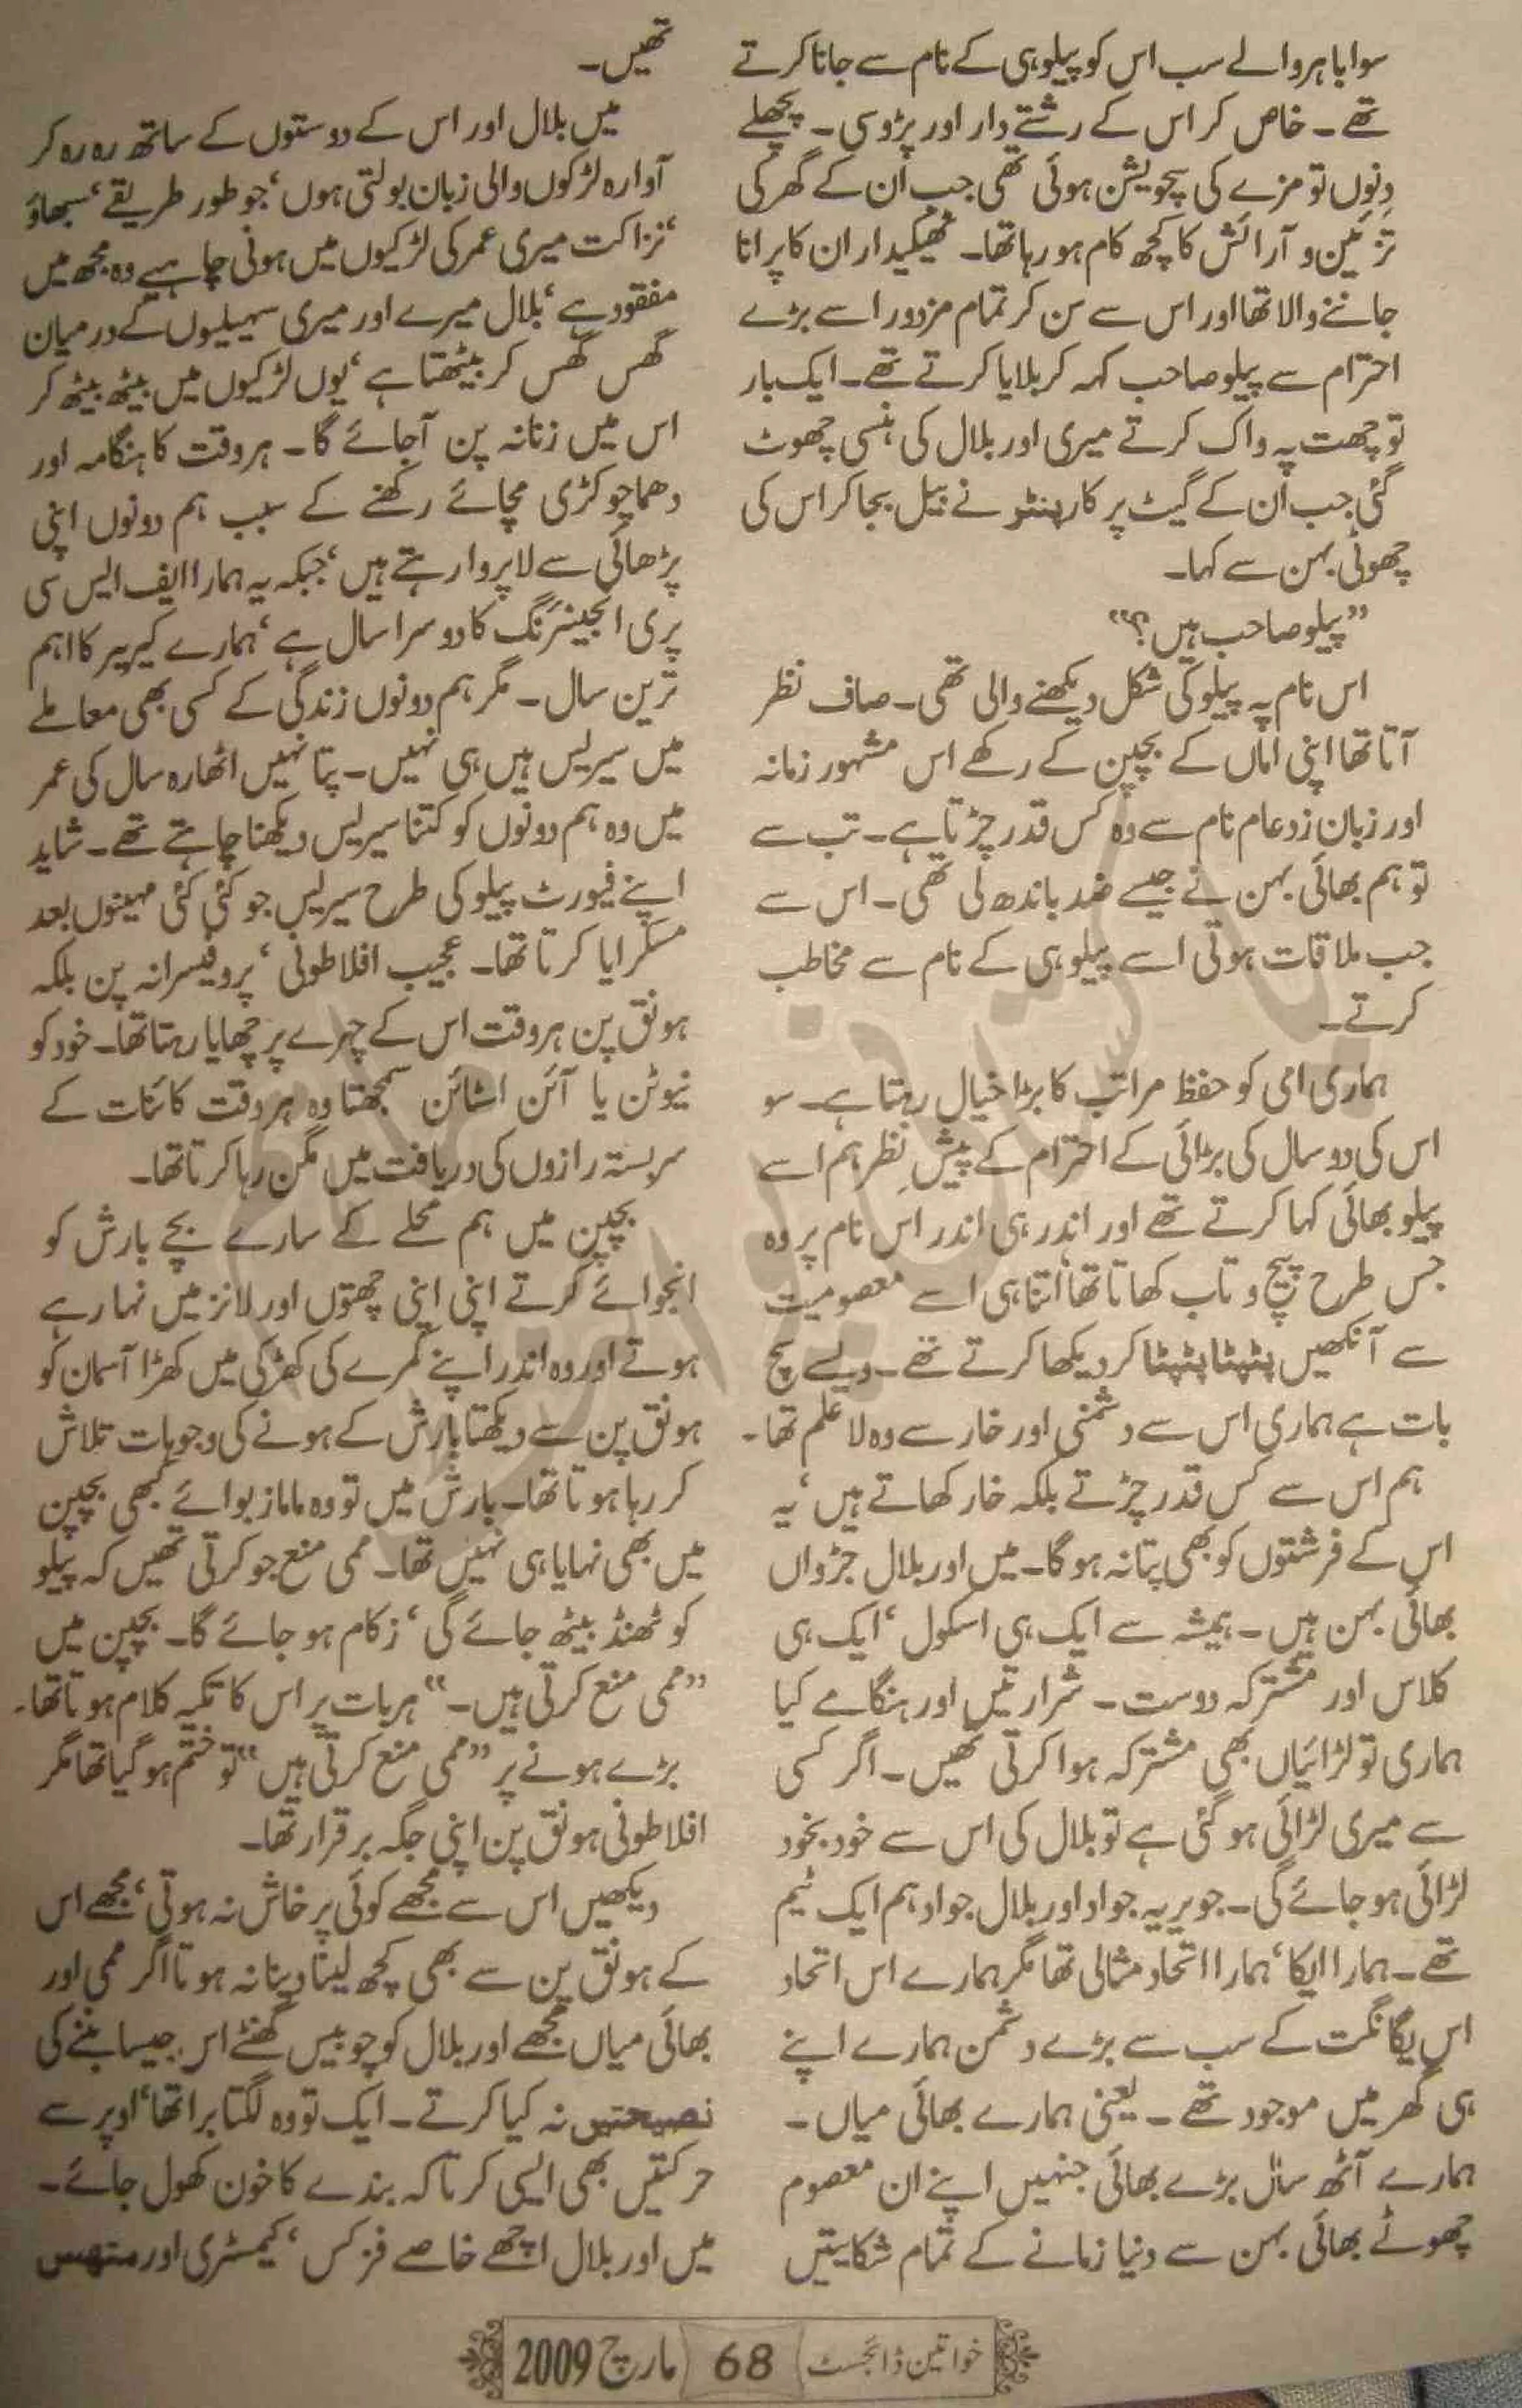 سو ابا ہر والے سب اس کو پیلو ہی کے نام سے جانا کرتے
تھے۔ خاص کر اس کے رشتے دار اور پڑوسی۔ پچھلے
دنوں تو مزے کی سچویشن ہوئی تھی جب ان کے گھر کی
تزئین و آرائش کا کچھ کام ہو رہا تھا۔ ٹھیکیدار ان کا پرانا
جاننے والا تھا اور اس سے سن کر تمام مزدور اسے بڑے
احترام سے پیلو صاحب کہہ کر بلایا کرتے تھے۔ ایک بار
تو چھت پہ واک کرتے میری اور بلال کی ہنسی چھوٹ
گئی جب ان کے گیٹ پر کارپنٹر نے بیل بجا کر اس کی
چھوٹی بہن سے کہا۔
”پیلو صاحب ہیں؟“
اس نام پہ پیلو کی شکل دیکھنے والی تھی۔ صاف نظر
آتا تھا اپنی اماں کے بچپن کے رکھے اس مشہور زمانہ
اور زبان زد عام نام سے وہ کس قدر چڑتا ہے۔ تب سے
تو ہم بھائی بہن نے جیسے ضد باندھ لی تھی۔ اس سے
جب ملاقات ہوتی اسے پیلو ہی کے نام سے مخاطب
کرتے۔
ہماری امی کو حفظ مراتب کا بڑا خیال رہتا ہے۔ سو
اس کی دو سال کی بڑائی کے احترام کے پیشِ نظر ہم اسے
پیلو بھائی کہا کرتے تھے اور اندر ہی اندر اس نام پر وہ
جس طرح پیچ و تاب کھاتا تھا اتنا ہی اسے معصومیت
سے آنکھیں پٹپٹا پٹپٹا کر دیکھا کرتے تھے۔ ویسے سچ
بات ہے ہماری اس سے دشمنی اور خار سے وہ لاعلم تھا۔
ہم اس سے کس قدر چڑتے بلکہ خار کھاتے ہیں‘ یہ
اس کے فرشتوں کو بھی پتا نہ ہو گا۔ میں اور بلال جڑواں
بھائی بہن ہیں۔ ہمیشہ سے ایک ہی اسکول‘ ایک ہی
کلاس اور مشترکہ دوست۔ شرارتیں اور ہنگامے کیا
ہماری تو لڑائیاں بھی مشترکہ ہوا کرتی تھیں۔ اگر کسی
سے میری لڑائی ہو گئی ہے تو بلال کی اس سے خودبخود
لڑائی ہو جائے گی۔ جویریہ جواد اور بلال جواد ہم ایک ٹیم
تھے۔ ہمارا ایکا‘ ہمارا اتحاد مثالی تھا مگر ہمارے اس اتحاد
اس یگانگت کے سب سے بڑے دشمن ہمارے اپنے
ہی گھر میں موجود تھے۔ یعنی ہمارے بھائی میاں۔
ہمارے آٹھ سال بڑے بھائی جنہیں اپنے ان معصوم
چھوٹے بھائی بہن سے دنیا زمانے کے تمام شکایتیں
تھیں۔
میں بلال اور اس کے دوستوں کے ساتھ رہ رہ کر
آوارہ لڑکوں والی زبان بولتی ہوں‘ جو طور طریقے‘ سبھاؤ
‘نزاکت میری عمر کی لڑکیوں میں ہونی چاہیے وہ مجھ میں
مفقود ہے‘ بلال میرے اور میری سہیلیوں کے درمیان
گھس گھس کر بیٹھتا ہے‘ یوں لڑکیوں میں بیٹھ بیٹھ کر
اس میں زنانہ پن آ جائے گا۔ ہر وقت کا ہنگامہ اور
دھما چوکڑی مچائے رکھنے کے سبب ہم دونوں اپنی
پڑھائی سے لاپروا رہتے ہیں‘ جبکہ یہ ہمارا ایف ایس سی
پری انجینئرنگ کا دوسرا سال ہے‘ ہمارے کیریر کا اہم
ترین سال۔ مگر ہم دونوں زندگی کے کسی بھی معاملے
میں سیریس ہیں ہی نہیں۔ پتا نہیں اٹھارہ سال کی عمر
میں وہ ہم دونوں کو کتنا سیریس دیکھنا چاہتے تھے۔ شاید
اپنے فیورٹ پیلو کی طرح سیریس جو کئی کئی مہینوں بعد
مسکرایا کرتا تھا۔ عجیب افلاطونی‘ پروفیسرانہ پن بلکہ
ہونق پن ہر وقت اس کے چہرے پر چھایا رہتا تھا۔ خود کو
نیوٹن یا آئن اسٹائن سمجھتا وہ ہر وقت کائنات کے
سربستہ رازوں کی دریافت میں مگن رہا کرتا تھا۔
بچپن میں ہم محلے کے سارے بچے بارش کو
انجوائے کرتے اپنی اپنی چھتوں اور لانز میں نہا رہے
ہوتے اور وہ اندر اپنے کمرے کی کھڑکی میں کھڑا آسمان کو
ہونق پن سے دیکھتا بارش کے ہونے کی وجوہات تلاش
کر رہا ہوتا تھا۔ بارش میں تو وہ ماماز بوائے کبھی بچپن
میں بھی نہایا ہی نہیں تھا۔ ممی منع جو کرتی تھیں کہ پیلو
کو ٹھنڈ بیٹھ جائے گی‘ زکام ہو جائے گا۔ بچپن میں
”ممی منع کرتی ہیں۔“ ہر بات پر اس کا تکیہ کلام ہوتا تھا۔
بڑے ہونے پر ”ممی منع کرتی ہیں“ تو ختم ہو گیا تھا مگر
افلاطونی ہونق پن اپنی جگہ برقرار تھا۔
دیکھیں اس سے مجھے کوئی پرخاش نہ ہوتی‘ مجھے اس
کے ہونق پن سے بھی کچھ لینا دینا نہ ہوتا اگر ممی اور
بھائی میاں مجھے اور بلال کو چوبیس گھنٹے اس جیسا بننے کی
نصیحتیں نہ کیا کرتے۔ ایک تو وہ لگتا برا تھا‘ اوپر سے
حرکتیں بھی ایسی کرتا کہ بندے کا خون کھول جائے۔
میں اور بلال اچھے خاصے فزکس‘ کیمسٹری اور میتھس
خواتین ڈائجسٹ 68 مارچ 2009